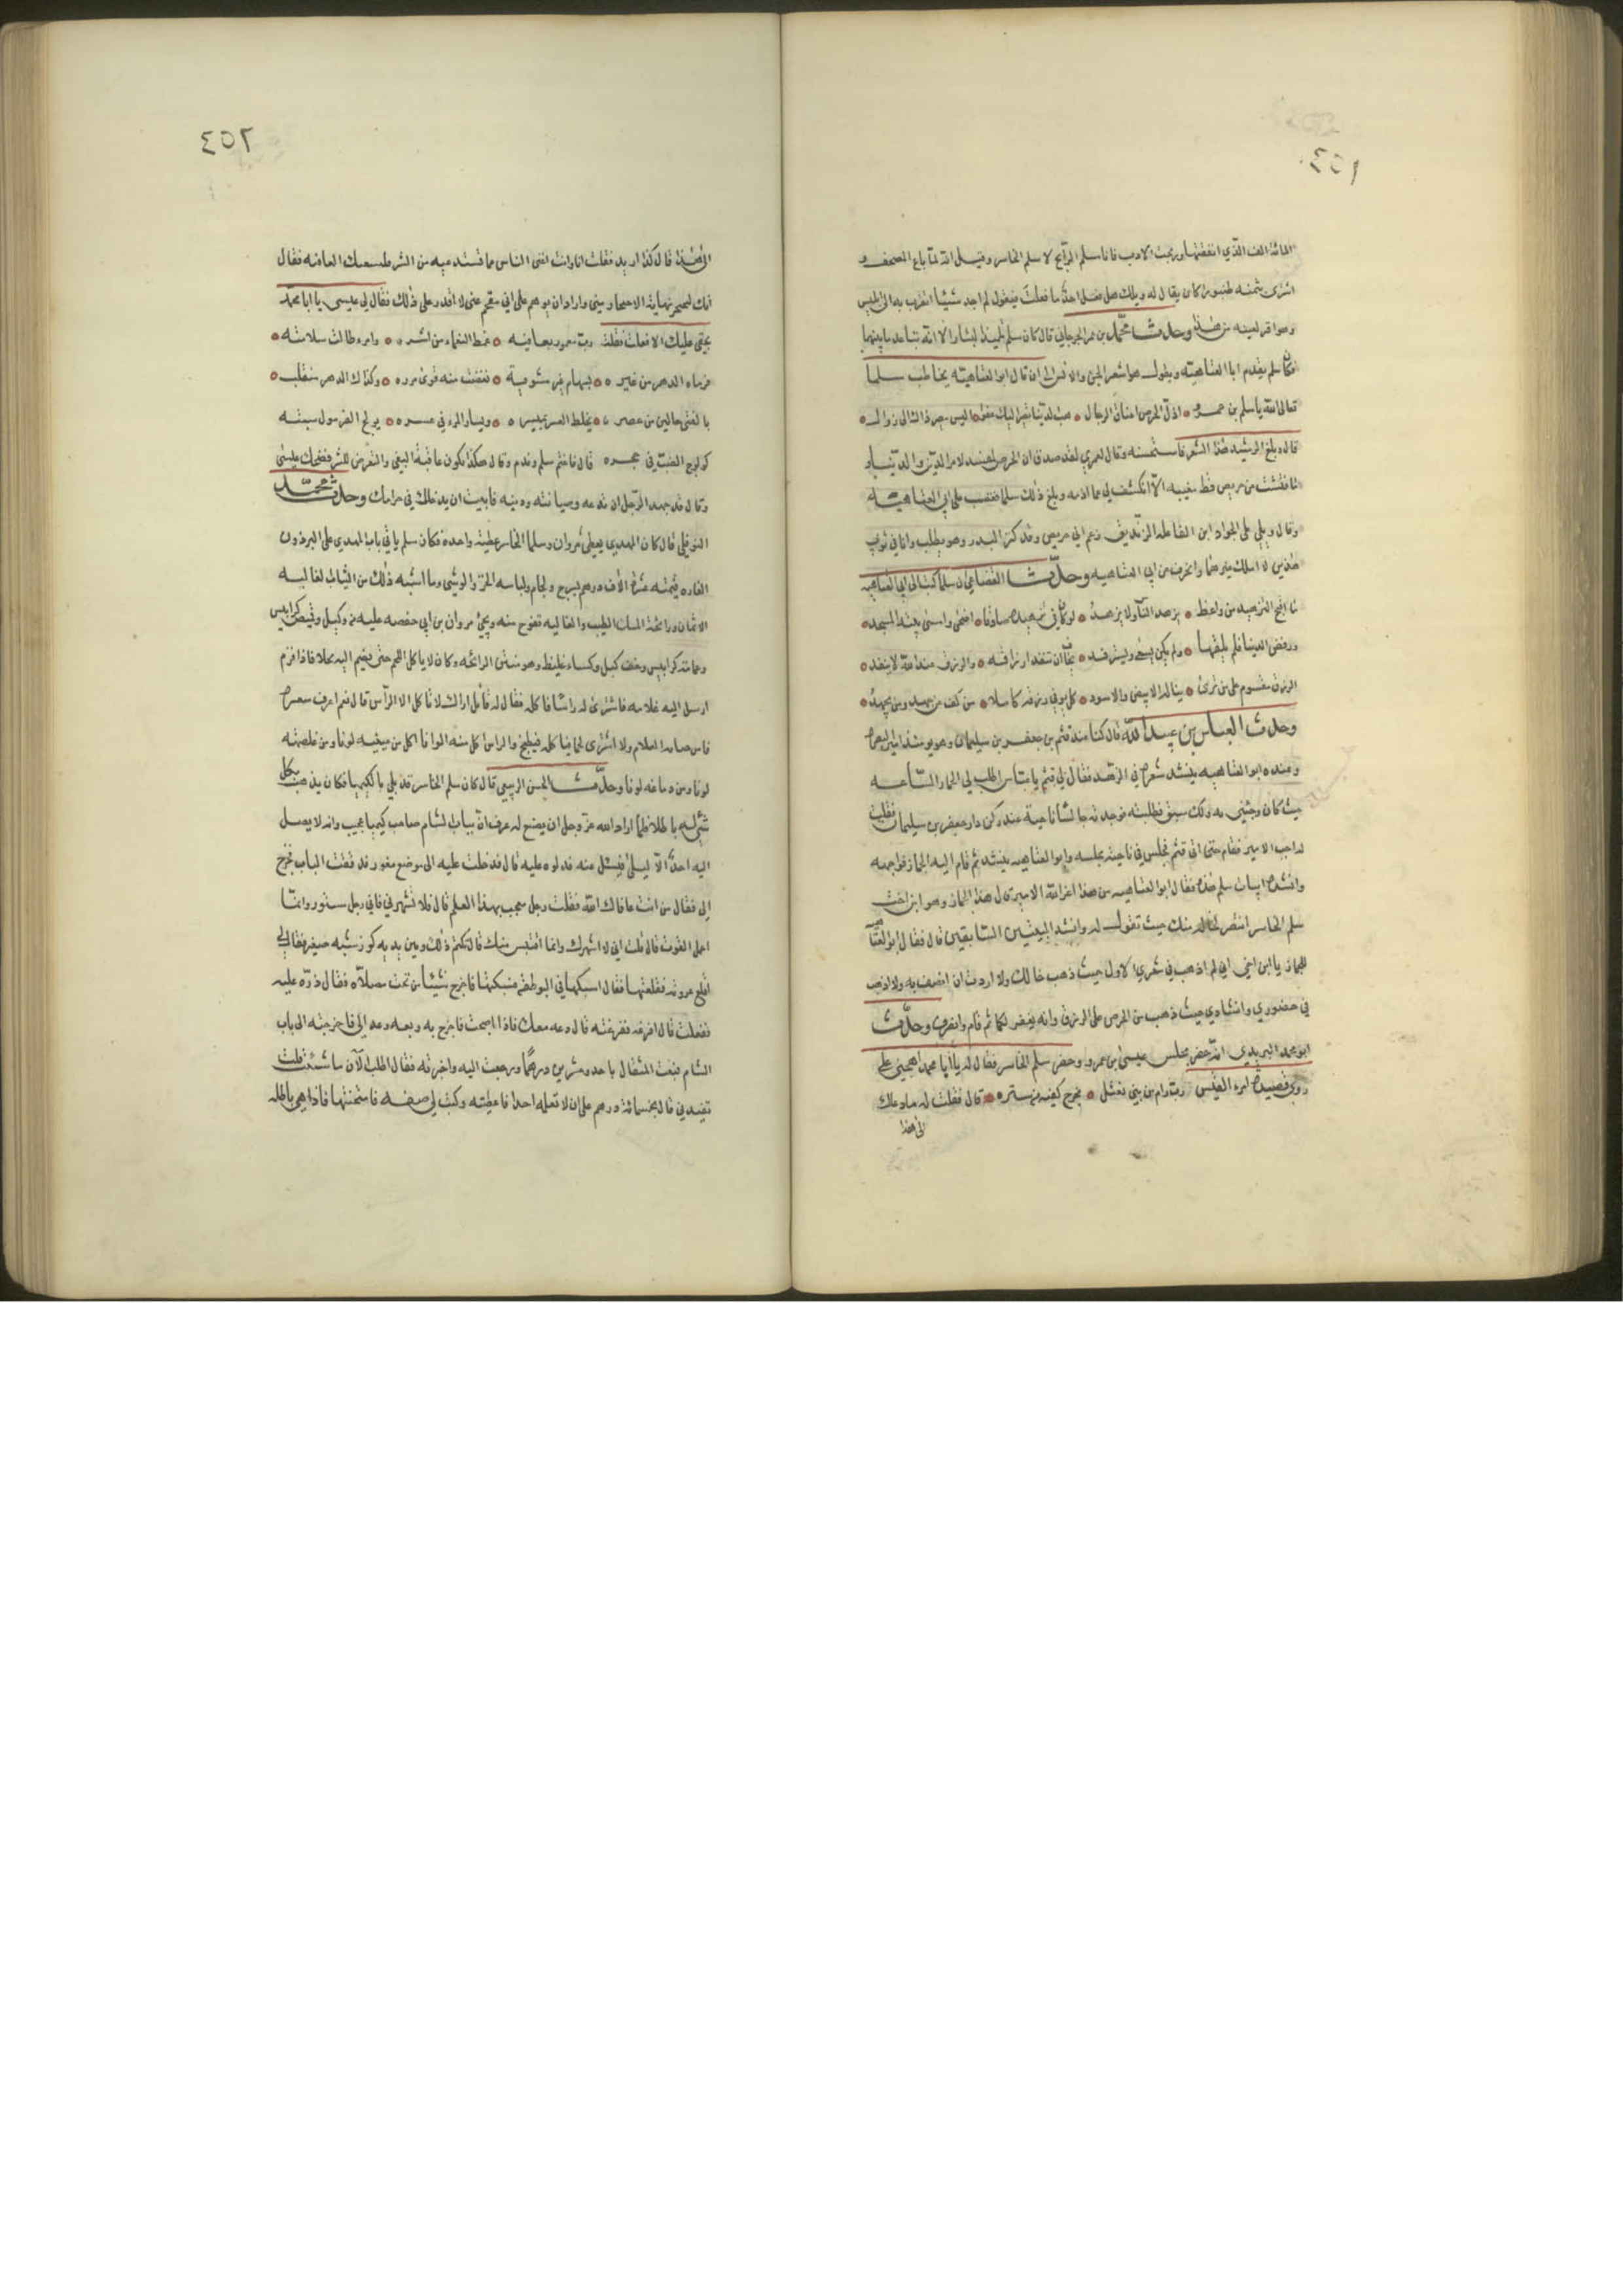 ٤٥١
المائة الف الذي انفقتها وربحت الادب فانا سلم الرابح لا سلم الخاسر وقيل انه لما باع المصحف و
اشترى بثمنه طنبورا كان يقال له ويلك هل فعل احد ما فعلت فيقول لم اجد شيئا اتقرب به الى ابليس
وهو اقر لعينه من هذا وحدثنا محمد بن عمر الجرجاني قال كان سلم تلميذ البشار الا انه تباعد ما بينهما
فكان سلم يقدم ابا العتاهية ويقول هو اشعر الجن والانس الى ان قال ابو العتاهية يخاطب سلما
تعالى الله يا سلم بن عمرو • اذل الحرص اعناق الرجال • هب الدنيا تصير اليك عفوا • اليس مصير ذاك الى زوال •
قال وبلغ الرشيد هذا الشعر فاستحسنه وقال لعمري لقد صدق ان الحرص لمفسد لامر الدين والدنيا و
ما فتشت من حريص قط مغيبه الا انكشف لي عما اذمه وبلغ ذلك سلما فغضب على ابي العتاهية
وقال ويلي على الجرار ابن الفاعلة الزنديق زعم اني حريص وقد كنز البدر وهو يطلب وانا في ثوبي
هذين لا املك غيرهما وانحرف عن ابي العتاهيه وحدثنا ان سلما كتب الى ابي العتاهيه
ما اقبح التزهيد من واعظ • يزهد الناس ولا يزهد • لو كان في تزهيده صادقا • اضحى وامسى بيته المسجد •
ورفض الدنيا فلم يلقها • ولم يكن يسعى ويسترفد • يخاف ان تنفد ارزاقه • والرزق عند الله لا ينفد •
الرزق مقسوم على من ترى • يناله الابيض والاسود • كل يوفى رزقه كاملا • من كف عن جهد ومن يجهد •
وحدث العباس بن عبد الله قال كنا عند قثم بن جعفر بن سليمان وهو يومئذ امير البصرة
وعنده ابو العتاهيه ينشد شعره في الزهد فقال لي قثم يا عباس اطلب لي الجماز الساعه
حيث كان وجئني به ولك سبق فطلبته فوجدته جالسا ناحية عند ركن دار جعفر بن سليمان فقلت
له اجب الامير فقام حتى اتى قثم فجلس في ناحية مجلسه وابو العتاهيه ينشد ثم قام اليه الجماز فواجهه
وانشده ابيات سلم هذه فقال ابو العتاهيه من هذا اعز الله الامير قال هذا الجماز وهو ابن اخت
سلم الخاسر انتصر لخاله منك حيث تقول له وانشد البيتين السابقين قال فقال ابو العتاهية
للجماز يا ابن اخي اني لم اذهب في شعري الاول حيث ذهب خالك ولا اردت ان اهتف به ولا اذهب
في حضوري وانشادي حيث ذهب من الحرص على الرزق والله يغفر لكما ثم قام وانصرف وحدثنا
ابو محمد اليزيدي انه حضر مجلس عيسى بن عمرو وحضر سلم الخاسر فقال له يا ابا محمد اهجني على
روي قصيدة امرء القيس رب رام من بني ثعل • مخرج كفيه من ستره • قال فقلت له ما دعاك
الى هذا
٤٥٢
الى هذا قال كذا اريد فقلت انا وانت اغنى الناس عما تستدعيه من الشر فلتسعك العافيه فقال
انك لتحجم نهاية الاحجام عني واراد ان يوهم عيسى اني مفحم عيي لا اقدر على ذلك فقال لي عيسى يا ابا محمد
بحقي عليك الا فعلت فقلت رب مغمور بعافيه • غمط النعماء من اشره • وامرء طالت سلامته •
فرماه الدهر من غيره • بسهام غير مشوية • نقضت منه قوى مرره • وكذاك الدهر منقلب •
بالفتى حالين من عصره • يخلط العسر بميسره • ويسار المرء في عسره •
فاغتم سلم وندم وقال هكذا تكون عاقبة البغي والتعرض للشر فضحك عيسى
وقال قد جهد الرجل ان تدعه وصيانته ودينه فابيت الا ان يدخلك في حرامك وحدث محمد
النوفلي قال كان المهدي يعطي مروان وسلما الخاسر عطية واحده فكان سلم ياتي باب المهدي على البرذون
الفاره قيمته عشرة الاف درهم بسرج ولجام ولباسه الخز والوشي وما اشبه ذلك من الثياب الغاليه
الاثمان ورائحة المسك والطيب والغاليه تفوح منه ويجي مروان بن ابي حفصه عليه فرو كبل وقميص كرابيس
وعمامة كرابيس وخف كبل وكساء غليظ وهو منتن الرائحه وكان لا ياكل اللحم حتى يقرم اليه بخلا فاذا قرم
ارسل اليه غلامه فاشترى له راسا فاكله فقال له قائل اراك لا تاكل الا الراس قال نعم اعرف سعره
فامن خيانة الغلام ولا اشتري لحما فيطبخ والراس اكل منه الوانا اكل من عينيه لونا ومن غلصمته
لونا ومن دماغه لونا وحدثنا الحسن الربيعي قال كان سلم الخاسر قد بلي بالكيميا فكان يذهب بكل
شي له باطلا فلما اراد الله عز وجل ان يصنع له عرف ان بباب الشام صاحب كيميا عجيب وانه لا يصل
اليه احد الا ليلا فسئل عنه فدلوه عليه قال فدخلت عليه الى موضع معور فدققت الباب فخرج
الي فقال من انت عافاك الله فقلت رجل معجب بهذا العلم قال فلا تشهرني فاني رجل مستور وانما
اعمل للقوت قال قلت اني لا اشهرك وانما اقتبس منك قال فاكتم ذلك وبين يديه كوز شبه صغير فقال لي
اقلع عروته فقلعتها فقال اسبكها في البوطقه فسبكتها فاخرج شيئا من تحت مصلاه فقال ذره عليه
ففعلت قال افرغه فافرغته قال دعه معك فاذا اصبحت فاخرج به وبعه وعد الي فاخرجته الى باب
الشام فبعت المثقال باحد وعشرين درهما ورجعت اليه واخبرته فقال اطلب الآن ما شئت قلت
تفيدني قال بخمسمائة درهم على ان لا تعلمه احدا فاعطيته وكتب لي صفه فامتحنتها فاذا هي باطله